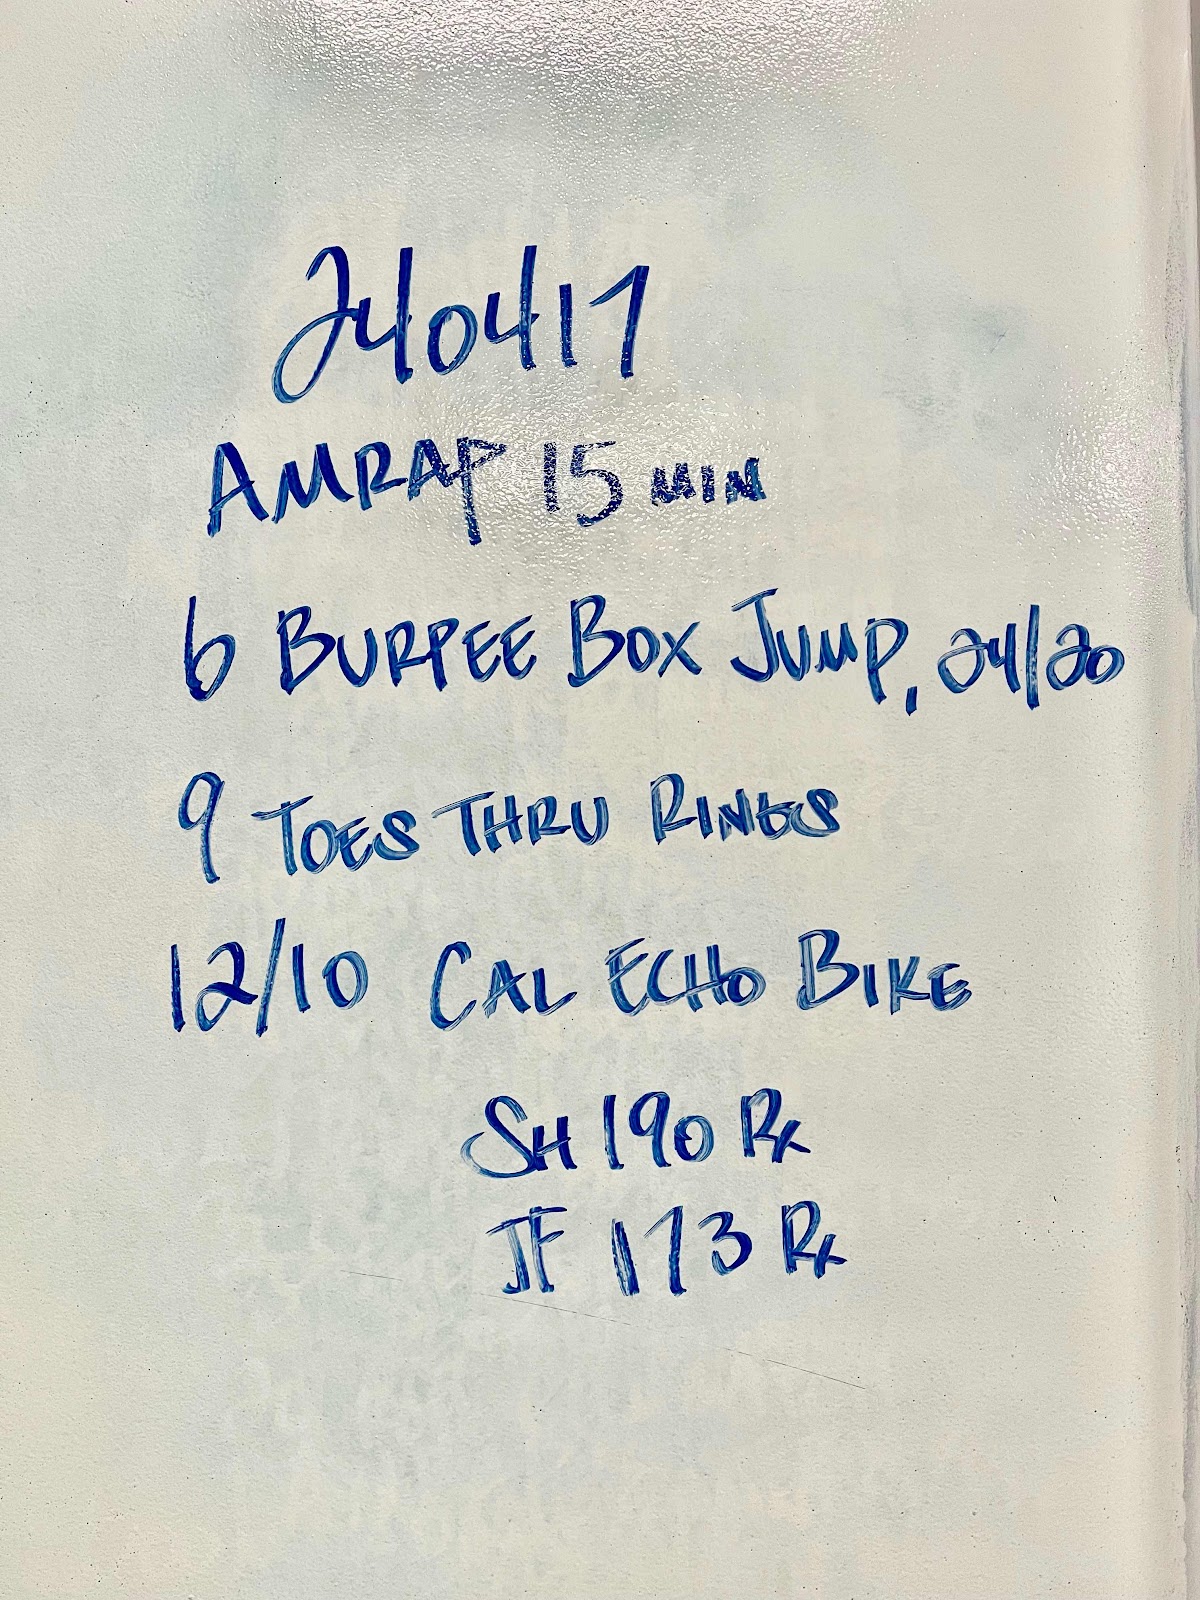 240417
AMRAP 15 MIN
6 BURPEE BOX JUMP, 24/20
9 TOES THRU RINGS
12/10 CAL ECHO BIKE
SH 190 Rx
JF 173 Rx